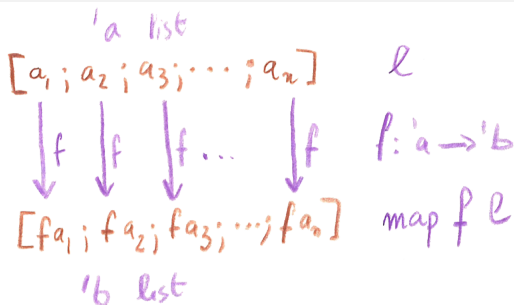 'a list
[a₁; a₂; a₃; ...; aₙ] l
f f f ... f f: 'a → 'b
[f a₁; f a₂; f a₃; ...; f aₙ] map f l
'b list